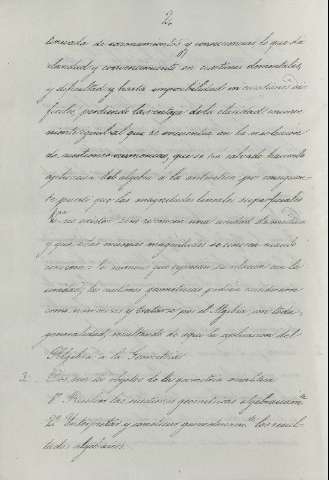 2
de razonamientos y consecuencias lo que da
claridad y convencimiento en cuestiones elementales,
y dificultad y hasta imposibilidad en cuestiones di-
fíciles, perdiendo la ventaja de la claridad
que se encuentra en la resolución
de cuestiones numericas, que se ha salvado haciendo
aplicacion del algebra á la aritmetica por
puesto que las magnitudes lineales superficiales
una unidad de medida
y que estas mismas magnitudes se conocen cuando
conocemos el numero que espresa su relacion con la
unidad, las cuestiones geometricas podrán considerarse
como numericas y tratarse por el Algebra con toda
generalidad, resultando de aqui la aplicacion del
Algebra a la Geometria
3. Dos son los objetos de la geometria analitica
1º Resolver las cuestiones geometricas algebraicamte
2º Interpretar y construir geometricamte los resul-
tados algebraicos